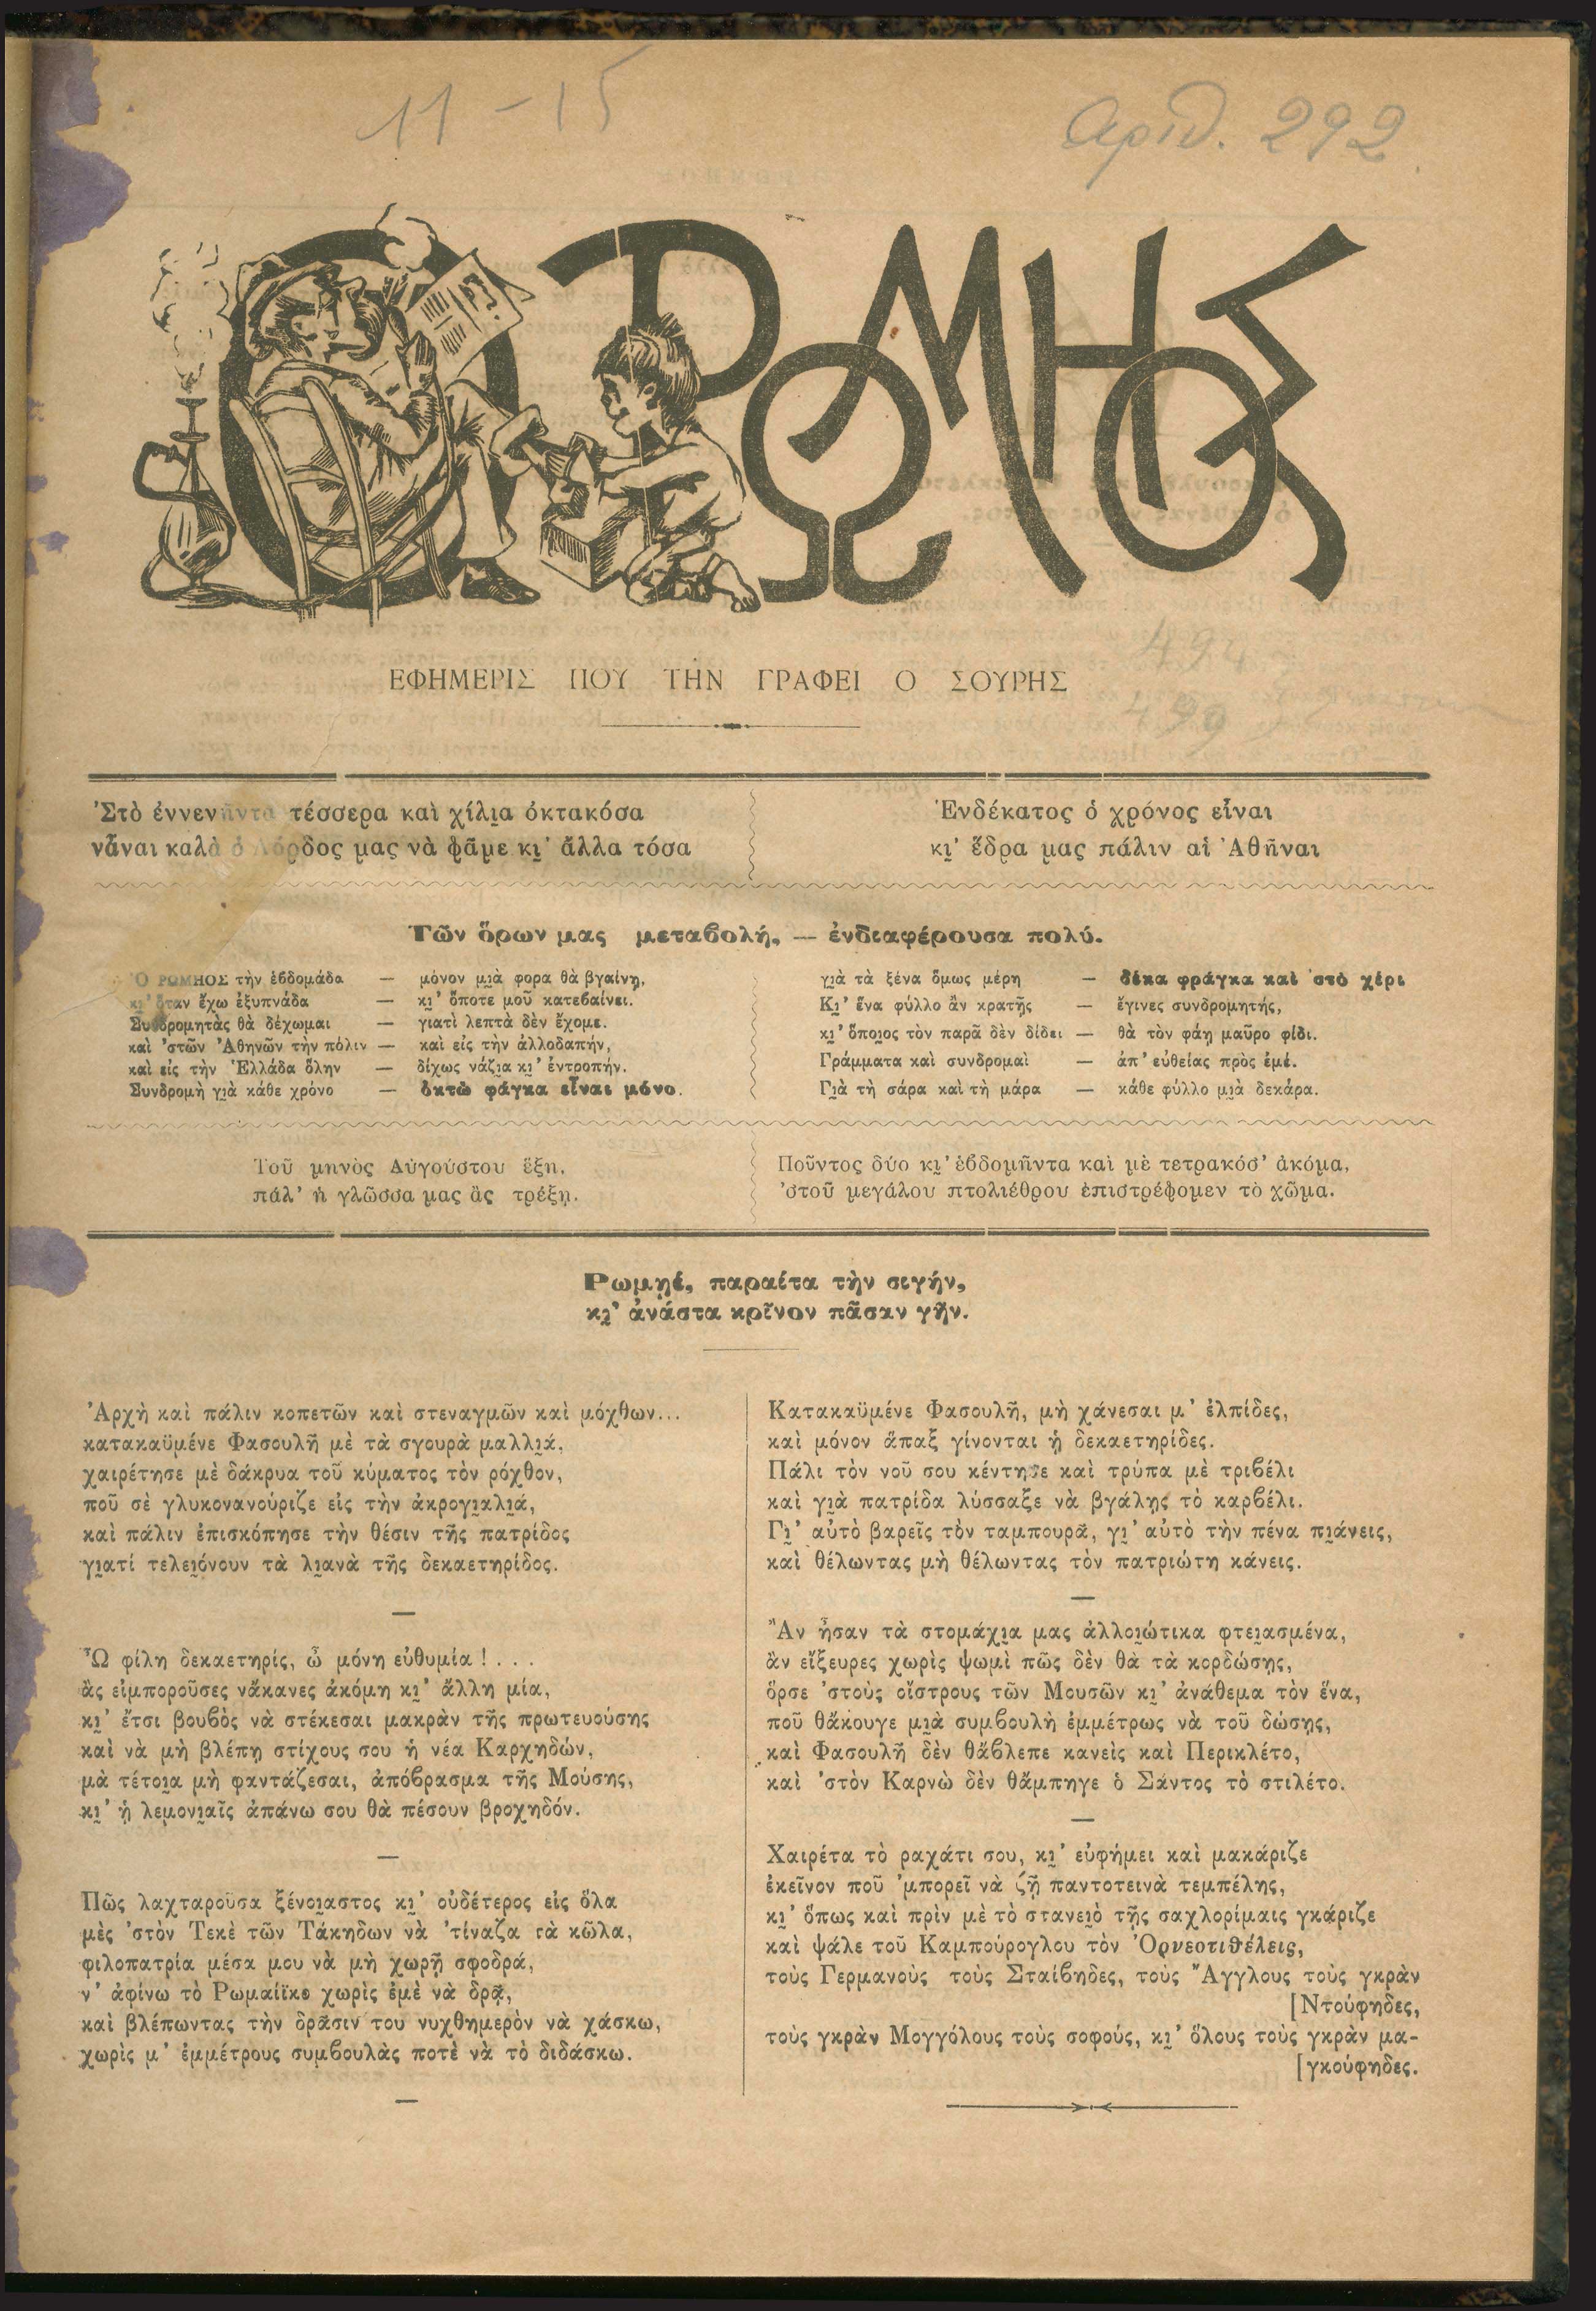 11 - 15
Αριθ. 292
Ο ΡΩΜΗΟΣ
ΕΦΗΜΕΡΙΣ ΠΟΥ ΤΗΝ ΓΡΑΦΕΙ Ο ΣΟΥΡΗΣ
494
499
Ἐνδέκατος ὁ χρόνος εἶναι
κι̯’ ἕδρα μας πάλιν αἱ Ἀθῆναι
Στὸ ἐννενῆντα τέσσερα καὶ χίλι̯α ὀκτακόσα
νἆναι καλὰ ὁ Λόρδος μας νὰ φᾶμε κι̯’ ἄλλα τόσα
Τῶν ὅρων μας μεταβολή, — ἐνδιαφέρουσα πολύ.
Ὁ ΡΩΜΗΟΣ τὴν ἑβδομάδα — μόνον μι̯ὰ φορα θὰ βγαίνῃ,
κι̯’ ὅταν ἔχω ἐξυπνάδα — κι̯’ ὅποτε μοῦ κατεβαίνει.
Συνδρομητὰς θὰ δέχωμαι — γιατὶ λεπτὰ δὲν ἔχομε.
καὶ ’στῶν Ἀθηνῶν τὴν πόλιν — καὶ εἰς τὴν ἀλλοδαπήν,
καὶ εἰς τὴν Ἑλλάδα ὅλην — δίχως νάζι̯α κι̯’ ἐντροπήν.
Συνδρομὴ γι̯ὰ κάθε χρόνο — ὀκτὼ φάγκα εἶναι μόνο.
γι̯ὰ τὰ ξένα ὅμως μέρη — δέκα φράγκα καὶ ’στὸ χέρι
Κι̯’ ἕνα φύλλο ἂν κρατῇς — ἔγινες συνδρομητής,
κι̯’ ὅποι̯ος τὸν παρᾶ δὲν δίδει — θὰ τὸν φάῃ μαῦρο φίδι.
Γράμματα καὶ συνδρομαὶ — ἀπ’ εὐθείας πρὸς ἐμέ.
Γι̯ὰ τὴ σάρα καὶ τὴ μάρα — κάθε φύλλο μι̯ὰ δεκάρα.
Τοῦ μηνὸς Αὐγούστου ἕξη,
πάλ’ ἡ γλῶσσα μας ἂς τρέξῃ.
Ποῦντος δύο κι̯’ ἑβδομῆντα καὶ μὲ τετρακόσ’ ἀκόμα,
’στοῦ μεγάλου πτολιέθρου ἐπιστρέφομεν τὸ χῶμα.
Ρωμῃέ, παραίτα τὴν σιγήν,
κι̯’ ἀνάστα κρῖνον πᾶσαν γῆν.
Ἀρχὴ καὶ πάλιν κοπετῶν καὶ στεναγμῶν καὶ μόχθων...
κατακαϋμένε Φασουλῆ μὲ τὰ σγουρὰ μαλλι̯ά,
χαιρέτησε μὲ δάκρυα τοῦ κύματος τὸν ρόχθον,
ποῦ σὲ γλυκονανούριζε εἰς τὴν ἀκρογι̯αλι̯ά,
καὶ πάλιν ἐπισκόπησε τὴν θέσιν τῆς πατρίδος
γι̯ατί τελει̯όνουν τὰ λι̯ανὰ τῆς δεκαετηρίδος.
—
Ὢ φίλη δεκαετηρίς, ὦ μόνη εὐθυμία ! . . .
ἂς εἰμποροῦσες νἄκανες ἀκόμη κι̯’ ἄλλη μία,
κι̯’ ἔτσι βουβὸς νὰ στέκεσαι μακρὰν τῆς πρωτευούσης
καὶ νὰ μὴ βλέπῃ στίχους σου ἡ νέα Καρχηδών,
μὰ τέτοι̯α μὴ φαντάζεσαι, ἀπόβρασμα τῆς Μούσης,
κι̯’ ᾑ λεμονι̯αῖς ἀπάνω σου θὰ πέσουν βροχηδόν.
—
Πῶς λαχταροῦσα ξένοι̯αστος κι̯’ οὐδέτερος εἰς ὅλα
μὲς ’στὸν Τεκὲ τῶν Τάκηδων νὰ ’τίναζα τὰ κῶλα,
φιλοπατρία μέσα μου νὰ μὴ χωρῇ σφοδρά,
ν’ ἀφίνω τὸ Ρωμαίϊκο χωρὶς ἐμὲ νὰ δρᾷ,
καὶ βλέπωντας τὴν δρᾶσιν του νυχθημερὸν νὰ χάσκω,
χωρὶς μ’ ἐμμέτρους συμβουλὰς ποτὲ νὰ τὸ διδάσκω.
—
Κατακαϋμένε Φασουλῆ, μὴ χάνεσαι μ’ ἐλπίδες,
καὶ μόνον ἅπαξ γίνονται ᾑ δεκαετηρίδες.
Πάλι τὸν νοῦ σου κέντησε καὶ τρύπα μὲ τριβέλι
καὶ γι̯ὰ πατρίδα λύσσαξε νὰ βγάλῃς τὸ καρβέλι.
Γι̯’ αὐτὸ βαρεῖς τὸν ταμπουρᾶ, γι̯’ αὐτὸ τὴν πένα πι̯άνεις,
καὶ θέλωντας μὴ θέλωντας τὸν πατριώτη κάνεις.
—
Ἂν ἦσαν τὰ στομάχι̯α μας ἀλλοι̯ώτικα φτει̯ασμένα,
ἂν εἴξευρες χωρὶς ψωμὶ πῶς δὲν θὰ τὰ κορδώσῃς,
ὅρσε ’στοὺς οἴστρους τῶν Μουσῶν κι̯’ ἀνάθεμα τὸν ἕνα,
ποῦ θἄκουγε μι̯ὰ συμβουλὴ ἐμμέτρως νὰ τοῦ δώσῃς,
καὶ Φασουλῆ δὲν θἄβλεπε κανεὶς καὶ Περικλέτο,
καὶ ’στὸν Καρνὼ δὲν θἄμπηγε ὁ Σάντος τὸ στιλέτο.
—
Χαιρέτα τὸ ραχάτι σου, κι̯’ εὐφήμει καὶ μακάριζε
ἐκεῖνον ποῦ ’μπορεῖ νὰ ζῇ παντοτεινὰ τεμπέλης,
κι̯’ ὅπως καὶ πρὶν μὲ τὸ στανει̯ὸ τῇς σαχλορίμαις γκάριζε
καὶ ψάλε τοῦ Καμπούρογλου τὸν Ὀρνεοτιθέλεις,
τοὺς Γερμανοὺς τοὺς Σταίβηδες, τοὺς Ἄγγλους τοὺς γκρὰν
[Ντούφηδες,
τοὺς γκρὰν Μογγόλους τοὺς σοφούς, κι̯’ ὅλους τοὺς γκρὰν μα-
[γκούφηδες.